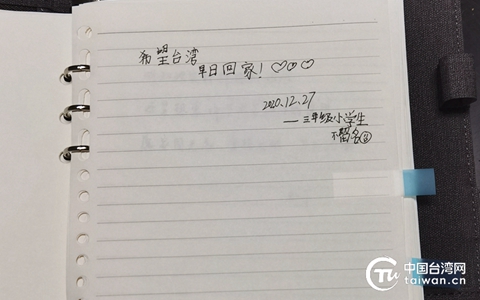 希望台湾
早日回家！♡♡♡
2020.12.27
——三年级小学生
不留名
中国台湾网
taiwan.cn